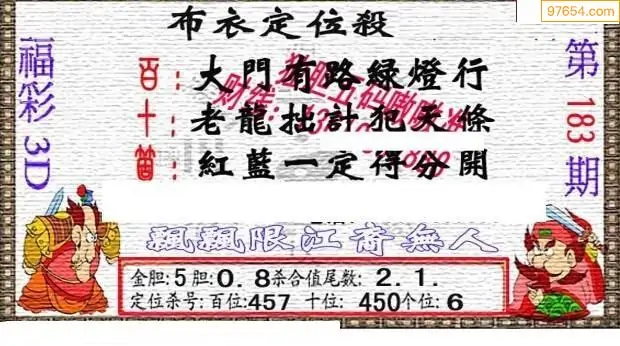 97654.com
布衣定位殺
福彩3D
第183期
百：大門有路綠燈行
十：老龍拙計犯天條
箇：紅藍一定得分開
飄飄限江裔無人
金胆:5胆:0.8杀合值尾数:2.1.
定位杀号:百位:457 十位:450个位:6